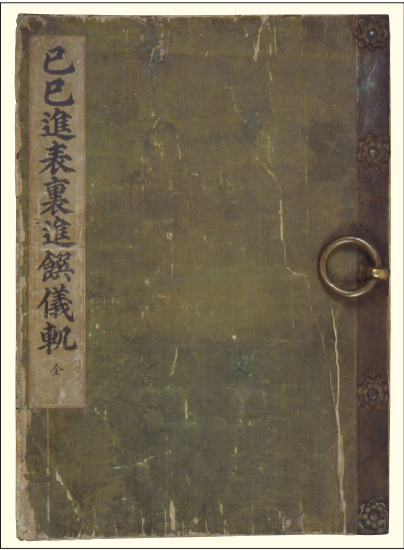 己巳進表裏進饌儀軌
全